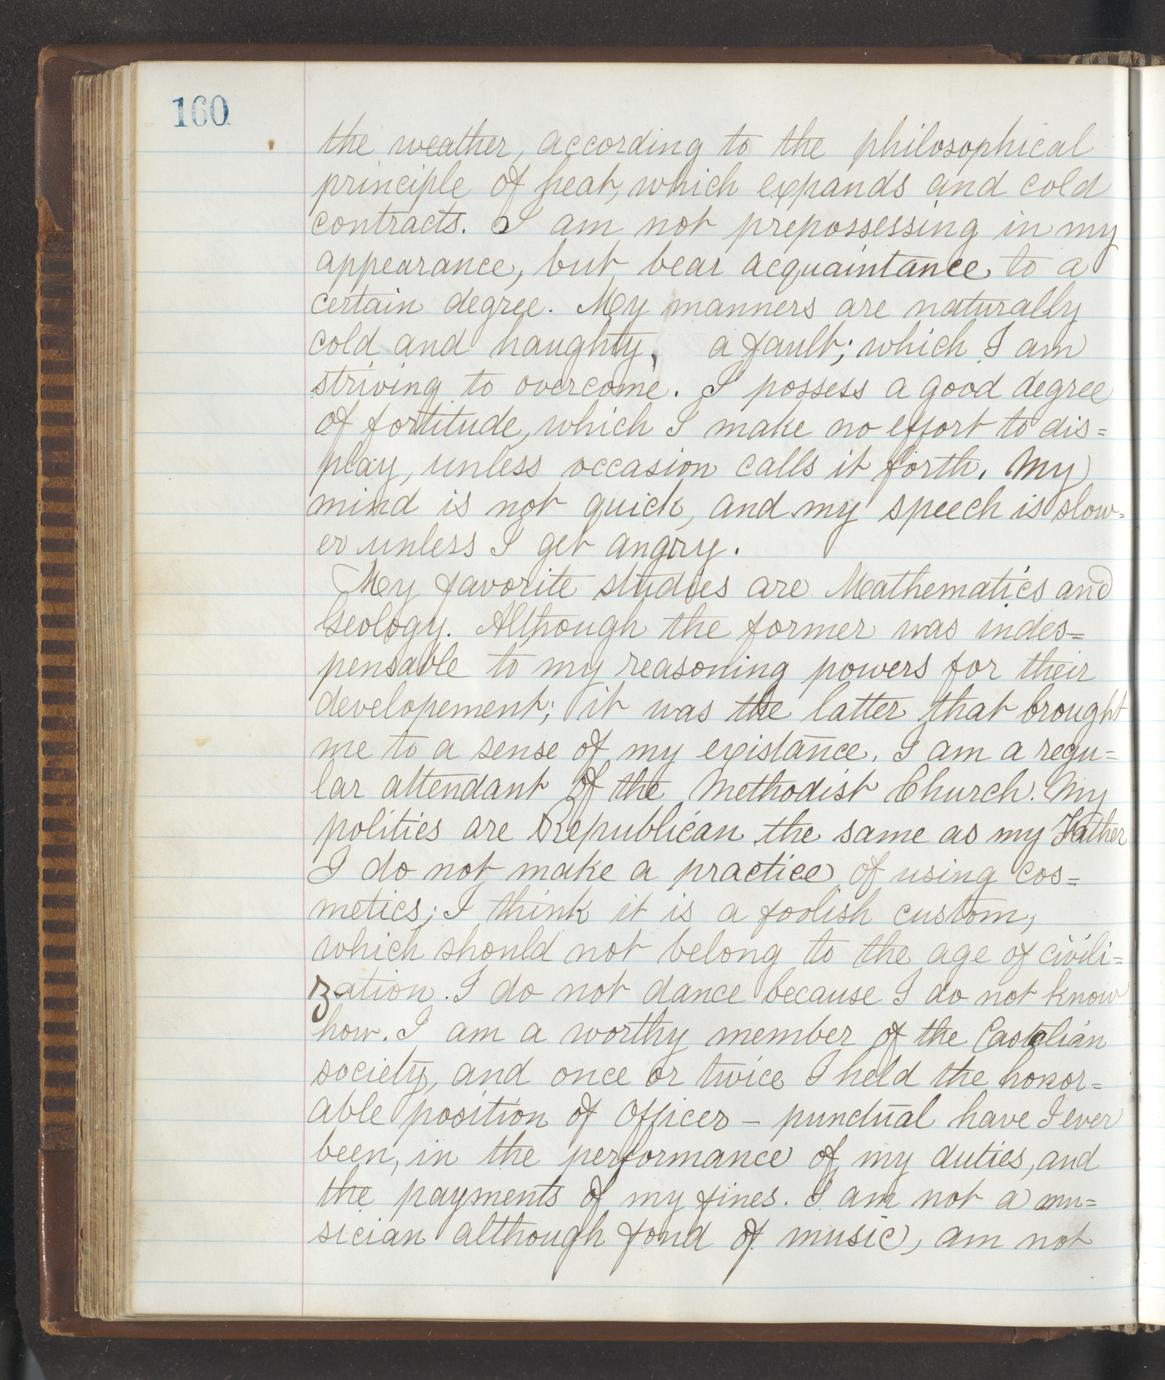 160
the weather, according to the philosophical
principle of heat, which expands and cold
contracts. I am not prepossessing in my
appearance, but bear acquaintance to a
certain degree. My manners are naturally
cold and haughty, a fault; which I am
striving to overcome. I possess a good degree
of fortitude, which I make no effort to dis=
play, unless occasion calls it forth. My
mind is not quick, and my speech is slow-
er unless I get angry.
My favorite studies are Mathematics and
Geology. Although the former was indes=
pensable to my reasoning powers for their
developement; it was the latter that brought
me to a sense of my existance. I am a regu=
lar attendant of the Methodist Church. My
politics are Republican the same as my Father
I do not make a practice of using cos=
metics; I think it is a foolish custom,
which should not belong to the age of civili=
zation. I do not dance because I do not know
how. I am a worthy member of the Castalian
society, and once or twice I held the honor=
able position of Officer – punctual have I ever
been, in the performance of my duties, and
the payments of my fines. I am not a mu=
sician although fond of music, am not